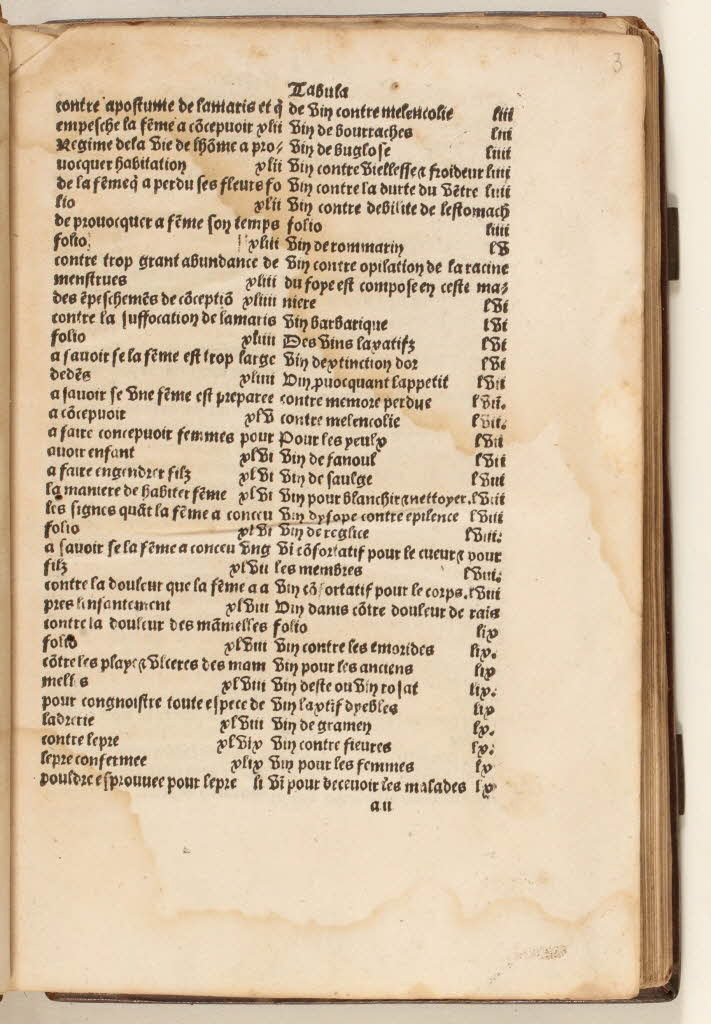 3
Tabula
contre apostume de lamaris et q̃
empesche la fẽme a cõcepuoir xlii
Regime dela vie de lhõme a pro-
uocquer habitation xlii
de la fẽmeq̃ a perdu ses fleurs fo
lio xlii
de prouocquer a fẽme son temps
folio. xliii
contre trop grant abundance de
menstrues xliii
des ẽpeschemẽs de cõceptiõ xliiii
contre la suffocation de lamaris
folio xliiii
a sauoir se la fẽme est trop large
dedẽs xliiii
a sauoir se vne fẽme est preparee
a cõcepuoir xlv
a faire concepuoir femmes pour
auoir enfant xlvi
a faire engendrer filz xlvi
la maniere de habiter fẽme xlvi
les signes quãt la fẽme a conceu
folio xlvi
a sauoir se la fẽme a conceu vng
filz xlvii
contre la douleur que la fẽme a a
pres lenfantement xlviii
contre la douleur des mãmelles
folio xlviii
cõtre les playes & vlceres des mam
melles xlviii
pour congnoistre toute espece de
ladrerie xlviii
contre lepre xlvix
lepre confermee xlix
pouldre esprouuee pour lepre li
de vin contre melencolie liii
vin de bourraches liii
vin de buglose liiii
vin contre viellesse & froideur liiii
vin contre la durte du vẽtre liiii
vin contre debilite de lestomach
folio liiii
vin de rommarin lv
vin contre opilation de la racine
du foye est compose en ceste ma-
niere lvi
vin barbarique lvi
Des vins laxatifz lvi
vin dextinction dor lvi
vin ꝓuocquant lappetit lvii
contre memore perdue lvii.
contre melencolie lvii.
Pour les yeulx lvii
vin de fanoul lvii
vin de saulge lviii
vin pour blanchir & nettoyer. lviii
vin dysope contre epilence lviii
vin de reglice lviii.
vi cõfortatif pour le cueur & pour
les membres lviii.
vin cõfortatif pour le corps. lviii
vin danis cõtre douleur de rais
folio lix
vin contre les emorides lix.
vin pour les anciens lix
vin deste ou vin rosat lix.
vin laxtif dyebles lix
vin de gramen lx.
vin contre fieures lx.
vin pour les femmes lx
vi pour deceuoir les malades lx
aii